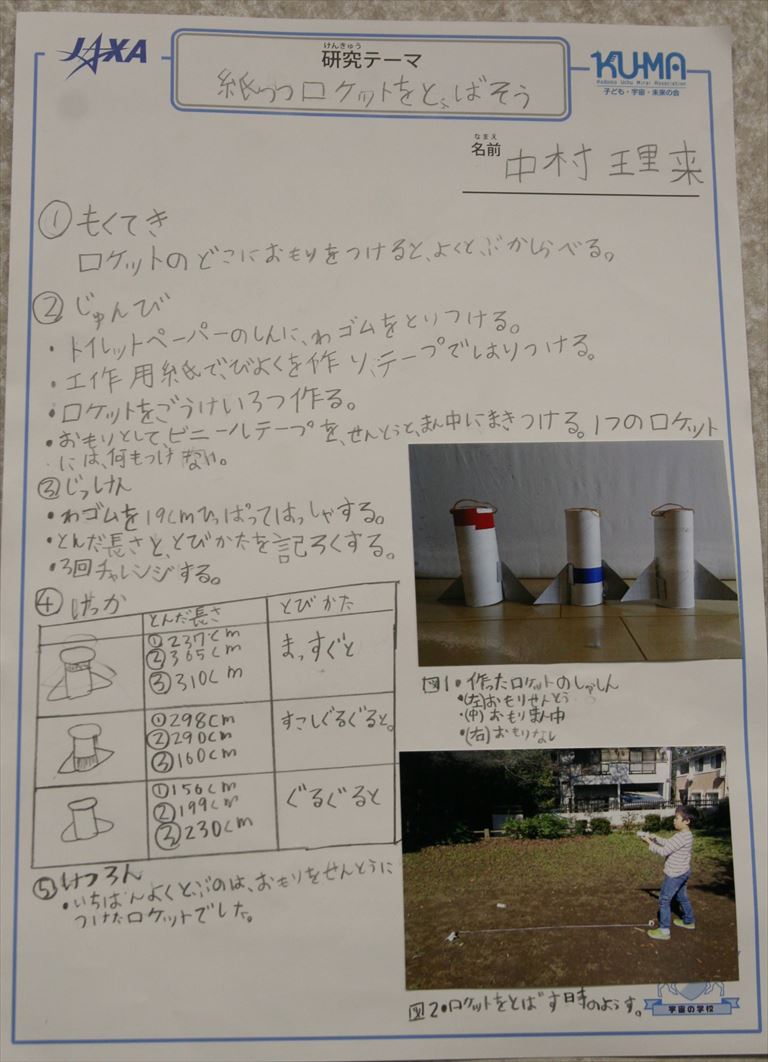 JAXA
けんきゅう
研究テーマ
紙つつロケットをとばそう
KU-MA
Kodomo Uchu Mirai Association
子ども・宇宙・未来の会
なまえ
名前
中村 理来
① もくてき
ロケットのどこにおもりをつけると、よくとぶかしらべる。
② じゅんび
・トイレットペーパーのしんに、わゴムをとりつける。
・工作用紙で、びよくを作り、テープではりつける。
・ロケットをごうけい3つ作る。
・おもりとして、ビニールテープを、せんとうと、まん中にまきつける。1つのロケット
には、何もつけない。
③ じっけん
・わゴムを19cmひっぱってはっしゃする。
・とんだ長さと、とびかたを記ろくする。
・3回チャレンジする。
④ けっか
とんだ長さ とびかた
①237cm
②365cm
③310cm
まっすぐと
①298cm
②290cm
③160cm
すこしぐるぐると。
①156cm
②199cm
③230cm
ぐるぐると
⑤ けつろん
・いちばんよくとぶのは、おもりをせんとうに
つけたロケットでした。
図1・作ったロケットのしゃしん
・(左)おもりせんとう
・(中)おもりまん中
・(右)おもりなし
図2・ロケットをとばす時のようす。
宇宙の学校